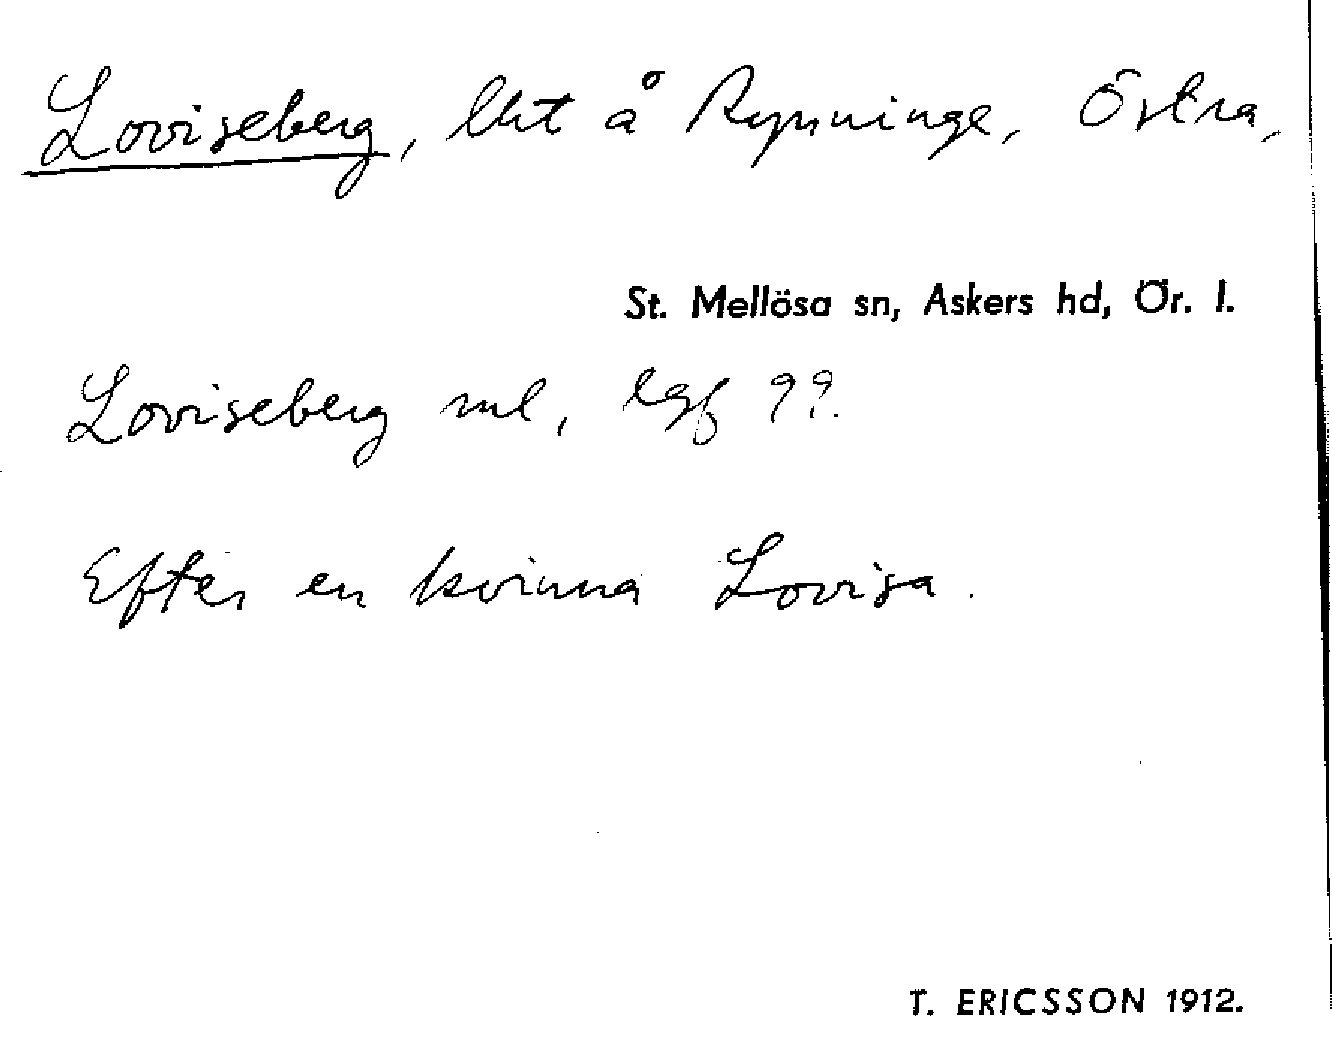 Loviseberg, lht å Rynninge, Östra,
St. Mellösa sn, Askers hd, Ör. l.
Loviseberg ml,
Efter en kvinna Lovisa.
T. ERICSSON 1912.